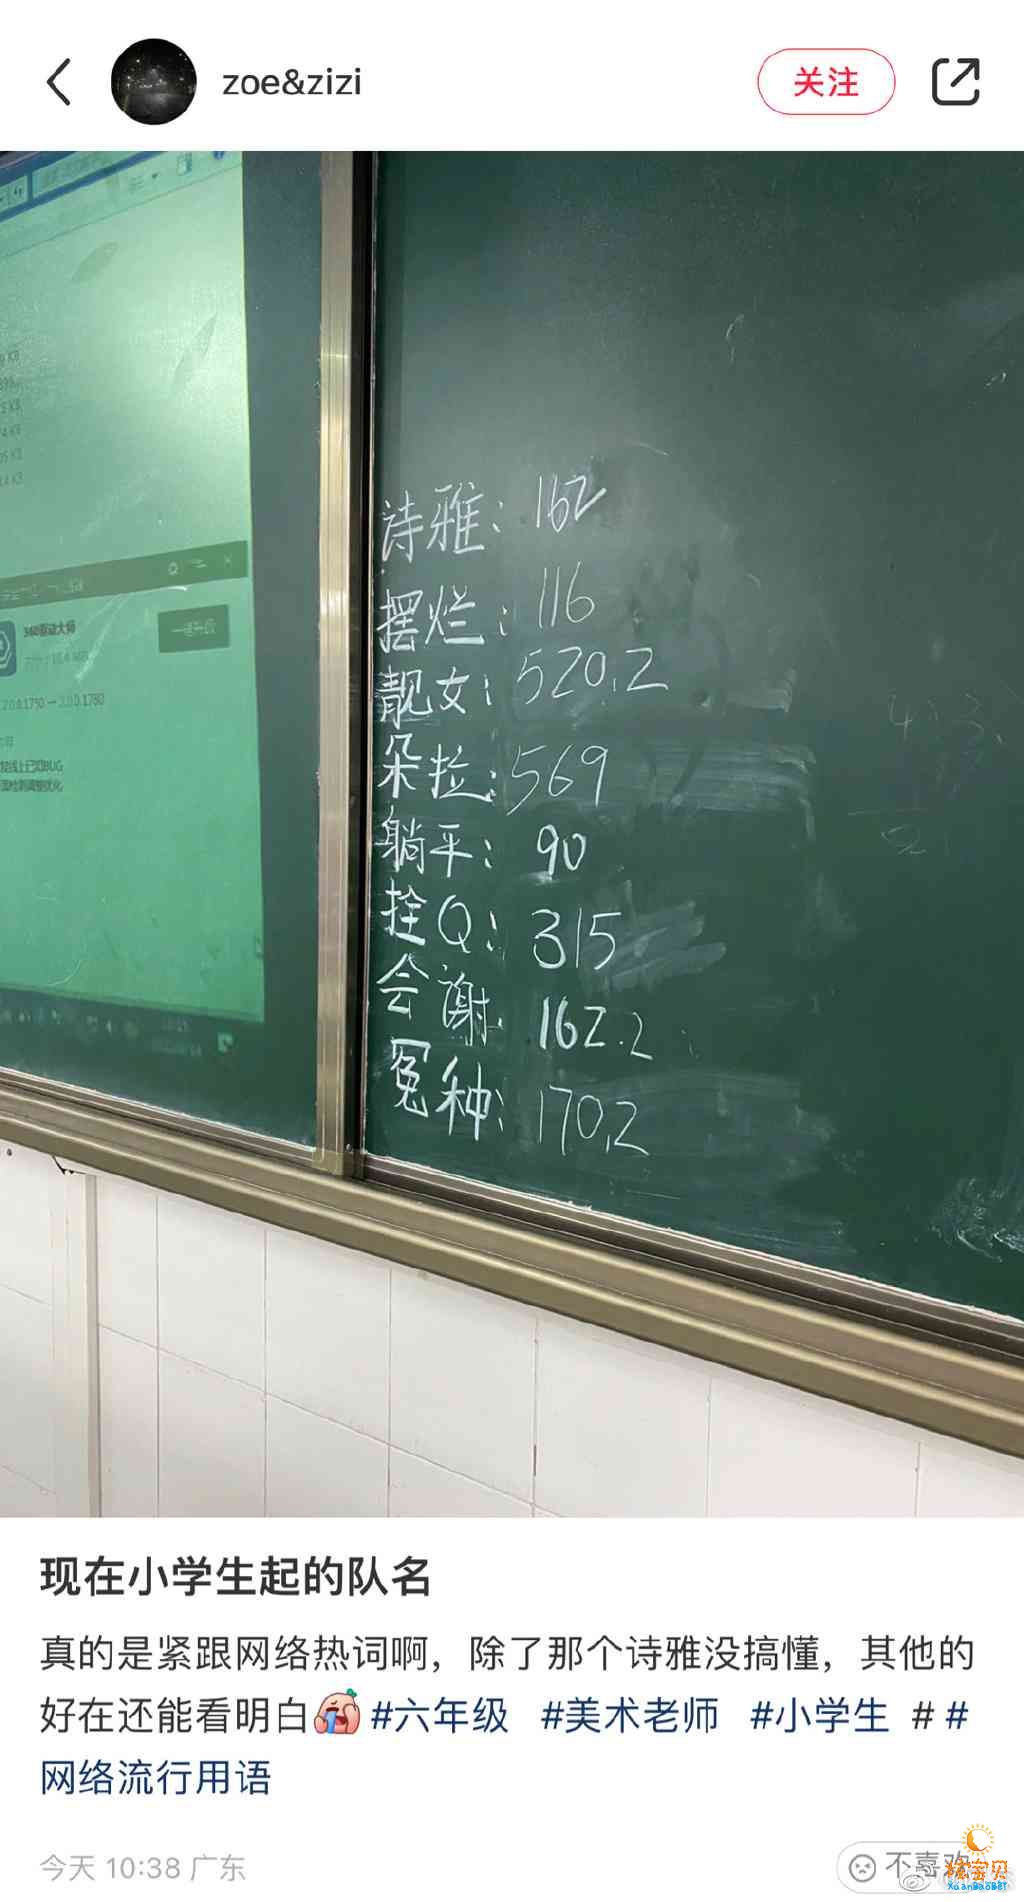 zoe&zizi
关注
诗雅：162
摆烂：116
靓女：520.2
朵拉：569
躺平：90
拴Q：315
会谢 162.2
冤种：170.2
360驱动大师
一键升级
现在小学生起的队名
真的是紧跟网络热词啊，除了那个诗雅没搞懂，其他的
好在还能看明白 #六年级 #美术老师 #小学生 # #
网络流行用语
今天 10:38 广东
不喜欢
XuanBaoBei